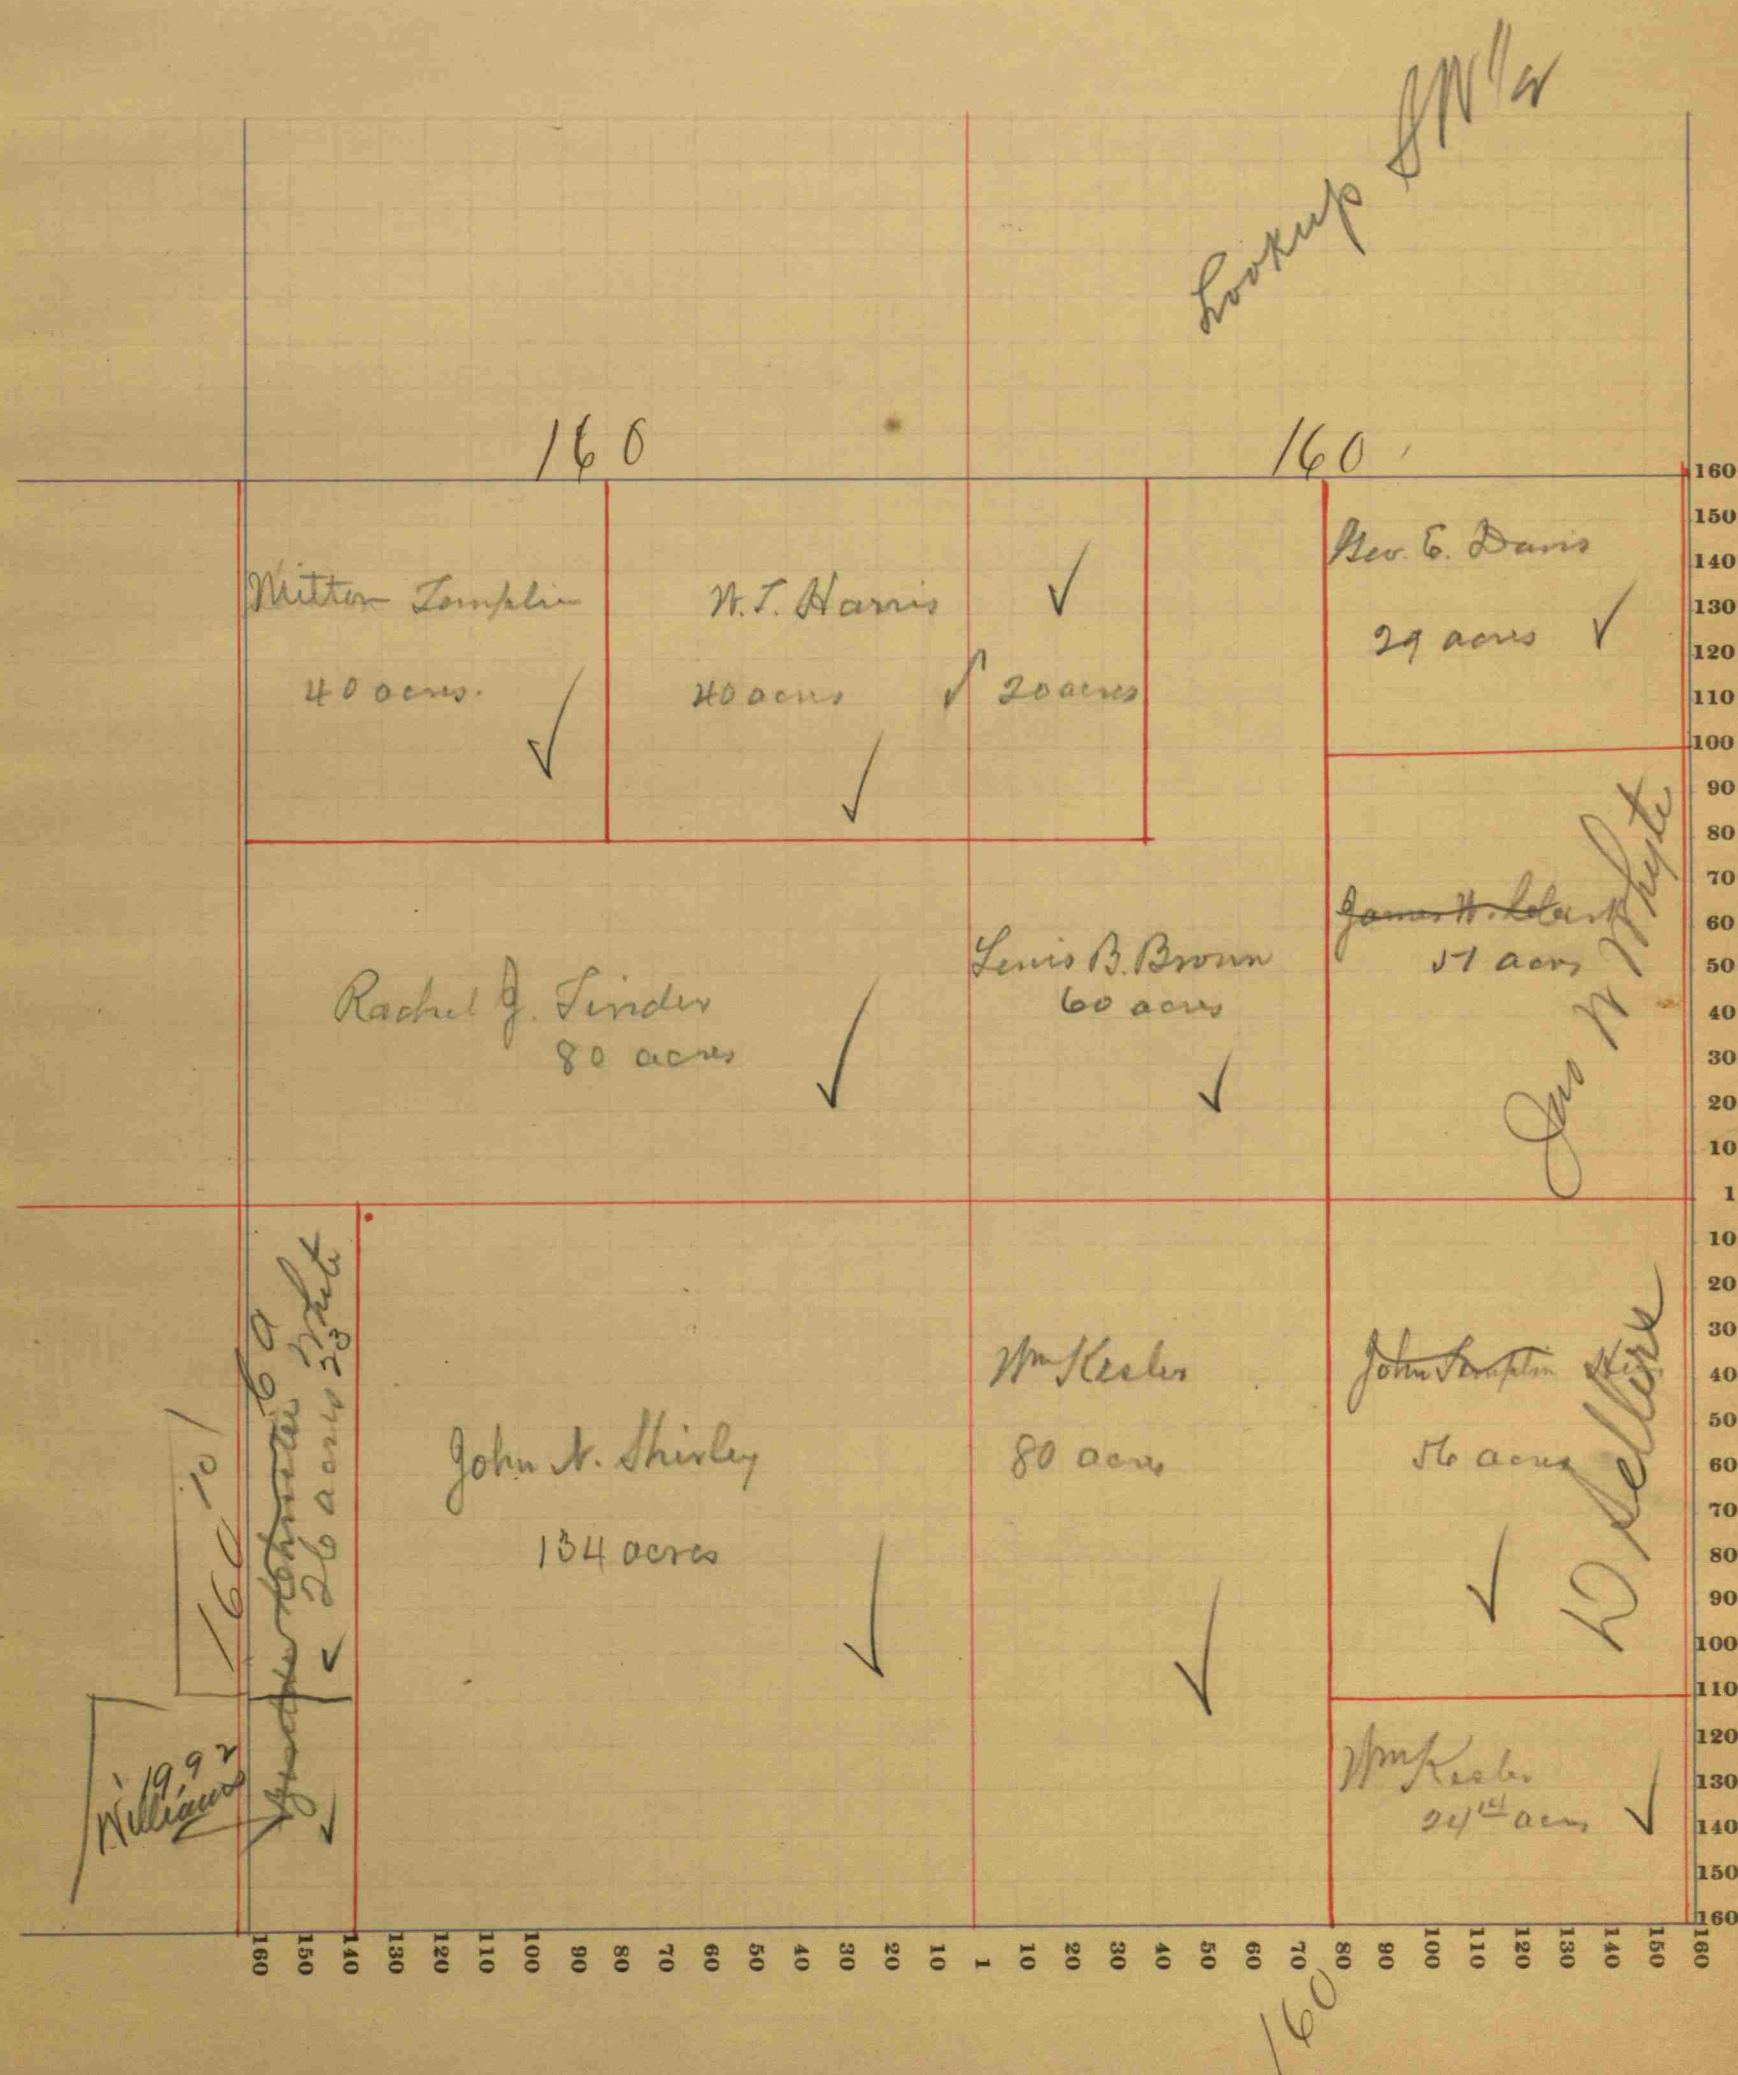 Lookup SW 1/4
160
160
Milton Templin
40 acres.
W. T. Harris
40 acres
20 acres
E. Davis
29 acres
Rachel J. Tinder
80 acres
Lewis B. Brown
60 acres
James H. Clark
51 acres
Jas W Whyte
John N. Shirley
134 acres
Wm Kesler
80 acres
John Templin
56 acres
D Sellers
Wm Kesler
24 acres
White
26 acres
160
Williams
160
150
140
130
120
110
100
90
80
70
60
50
40
30
20
10
1
10
20
30
40
50
60
70
80
90
100
110
120
130
140
150
160
160 150 140 130 120 110 100 90 80 70 60 50 40 30 20 10 1 10 20 30 40 50 60 70 80 90 100 110 120 130 140 150 160
160